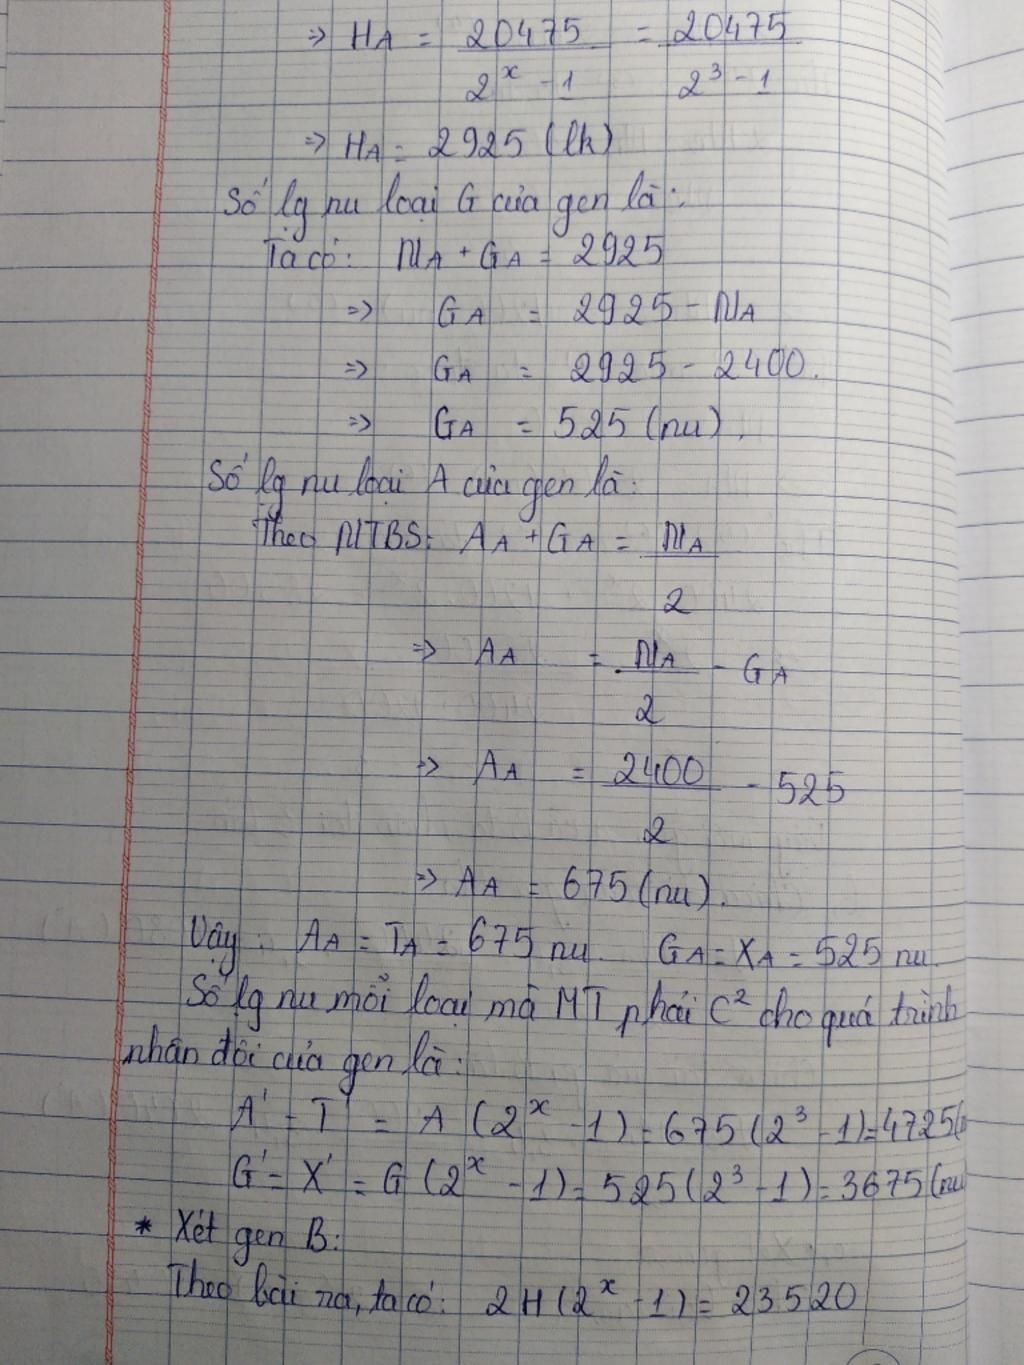 ⇒ HA = 20475 / (2^x - 1) = 20475 / (2^3 - 1)
⇒ HA = 2925 (lk)
Số lg nu loại G của gen là:
Ta có: NA + GA = 2925
⇒ GA = 2925 - NA
⇒ GA = 2925 - 2400.
⇒ GA = 525 (nu).
Số lg nu loại A của gen là:
Theo NTBS: AA + GA = NA / 2
⇒ AA = NA / 2 - GA
⇒ AA = 2400 / 2 - 525
⇒ AA = 675 (nu).
Vậy: AA = TA = 675 nu. GA = XA = 525 nu.
Số lg nu mỗi loại mà MT phải C² cho quá trình
nhân đôi của gen là:
A' = T' = A (2^x - 1) = 675 (2^3 - 1) = 4725 (n
G' = X' = G (2^x - 1) = 525 (2^3 - 1) = 3675 (nu
* Xét gen B:
Theo bài ra, ta có: 2H (2^x - 1) = 23520